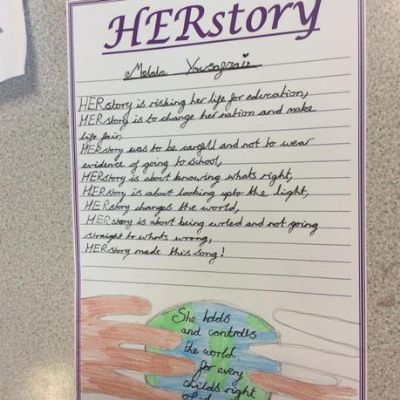 HERstory
Malala Yousafzai
HERstory is risking her life for education,
HERstory is to change her nation and make
life fair,
HERstory was to be carefull and not to wear
evidence of going to school,
HERstory is about knowing whats right,
HERstory is about looking upto the light,
HERstory changes the world,
HERstory is about being and not going
straight to whats wrong,
HERstory made this song!
She holds
and controlls
the world
for every
childs right